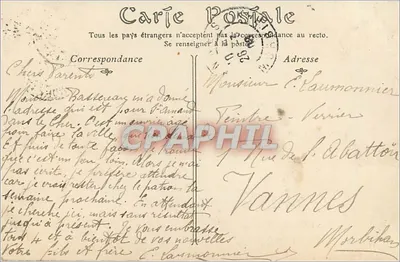 Carte Postale
Tous les pays étrangers n'acceptent pas la correspondance au recto.
Se renseigner à la poste
Correspondance
Adresse
Chers Parents
Monsieur Bassereau m'a donné
l'adresse qui est pour St Amand
dans le Cher. C'est un ouvrier âgé
pour faire la ville
Et puis de toute façon
que c'est un peu loin. Alors je n'ai
pas écrit, je préfère attendre
car je vrai chez le patron la
semaine prochaine. En attendant
je cherche ici, mais sans résultat
jusqu'à présent. Je vous embrasse
tous 4 et à bientôt de vos nouvelles
Votre fils et frère E. Laumonnier
Monsieur E. Laumonnier
Peintre-Verrier
Rue de l'Abattoir
Vannes
Morbihan
CPAPHIL